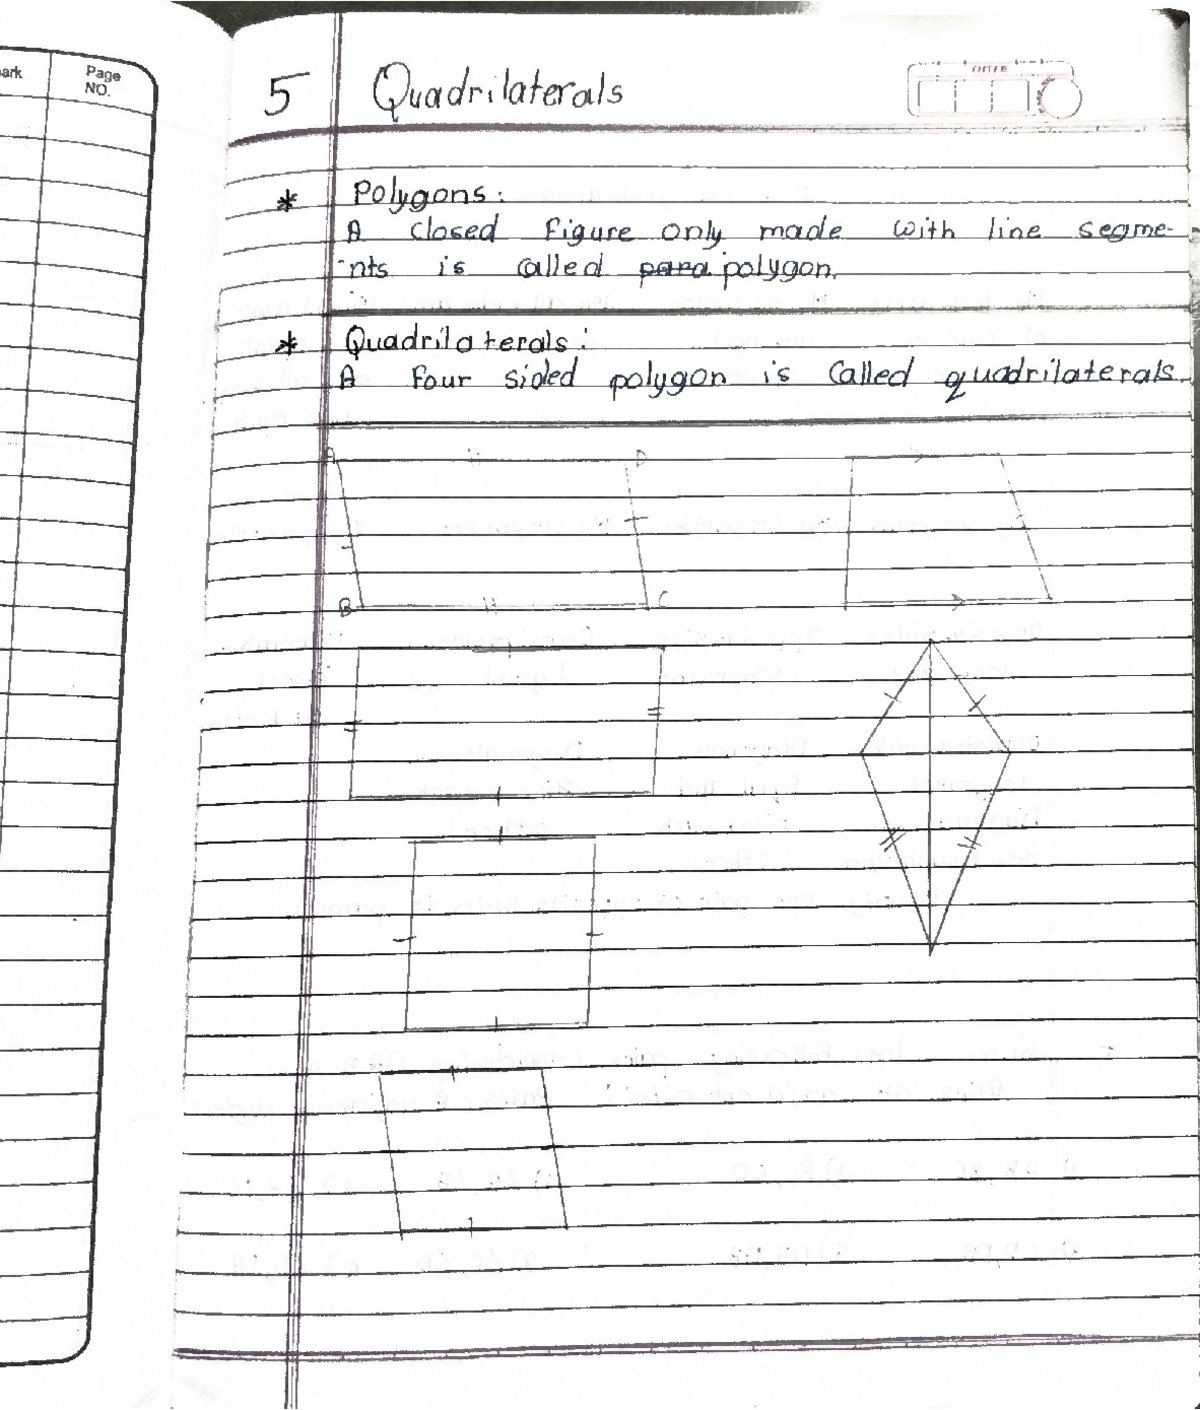 ark
Page
NO.
5 Quadrilaterals
DATE
* Polygons:
A closed figure only made with line segme-
nts is called para polygon.
* Quadrilaterals:
A four sided polygon is called quadrilaterals
A D
B C